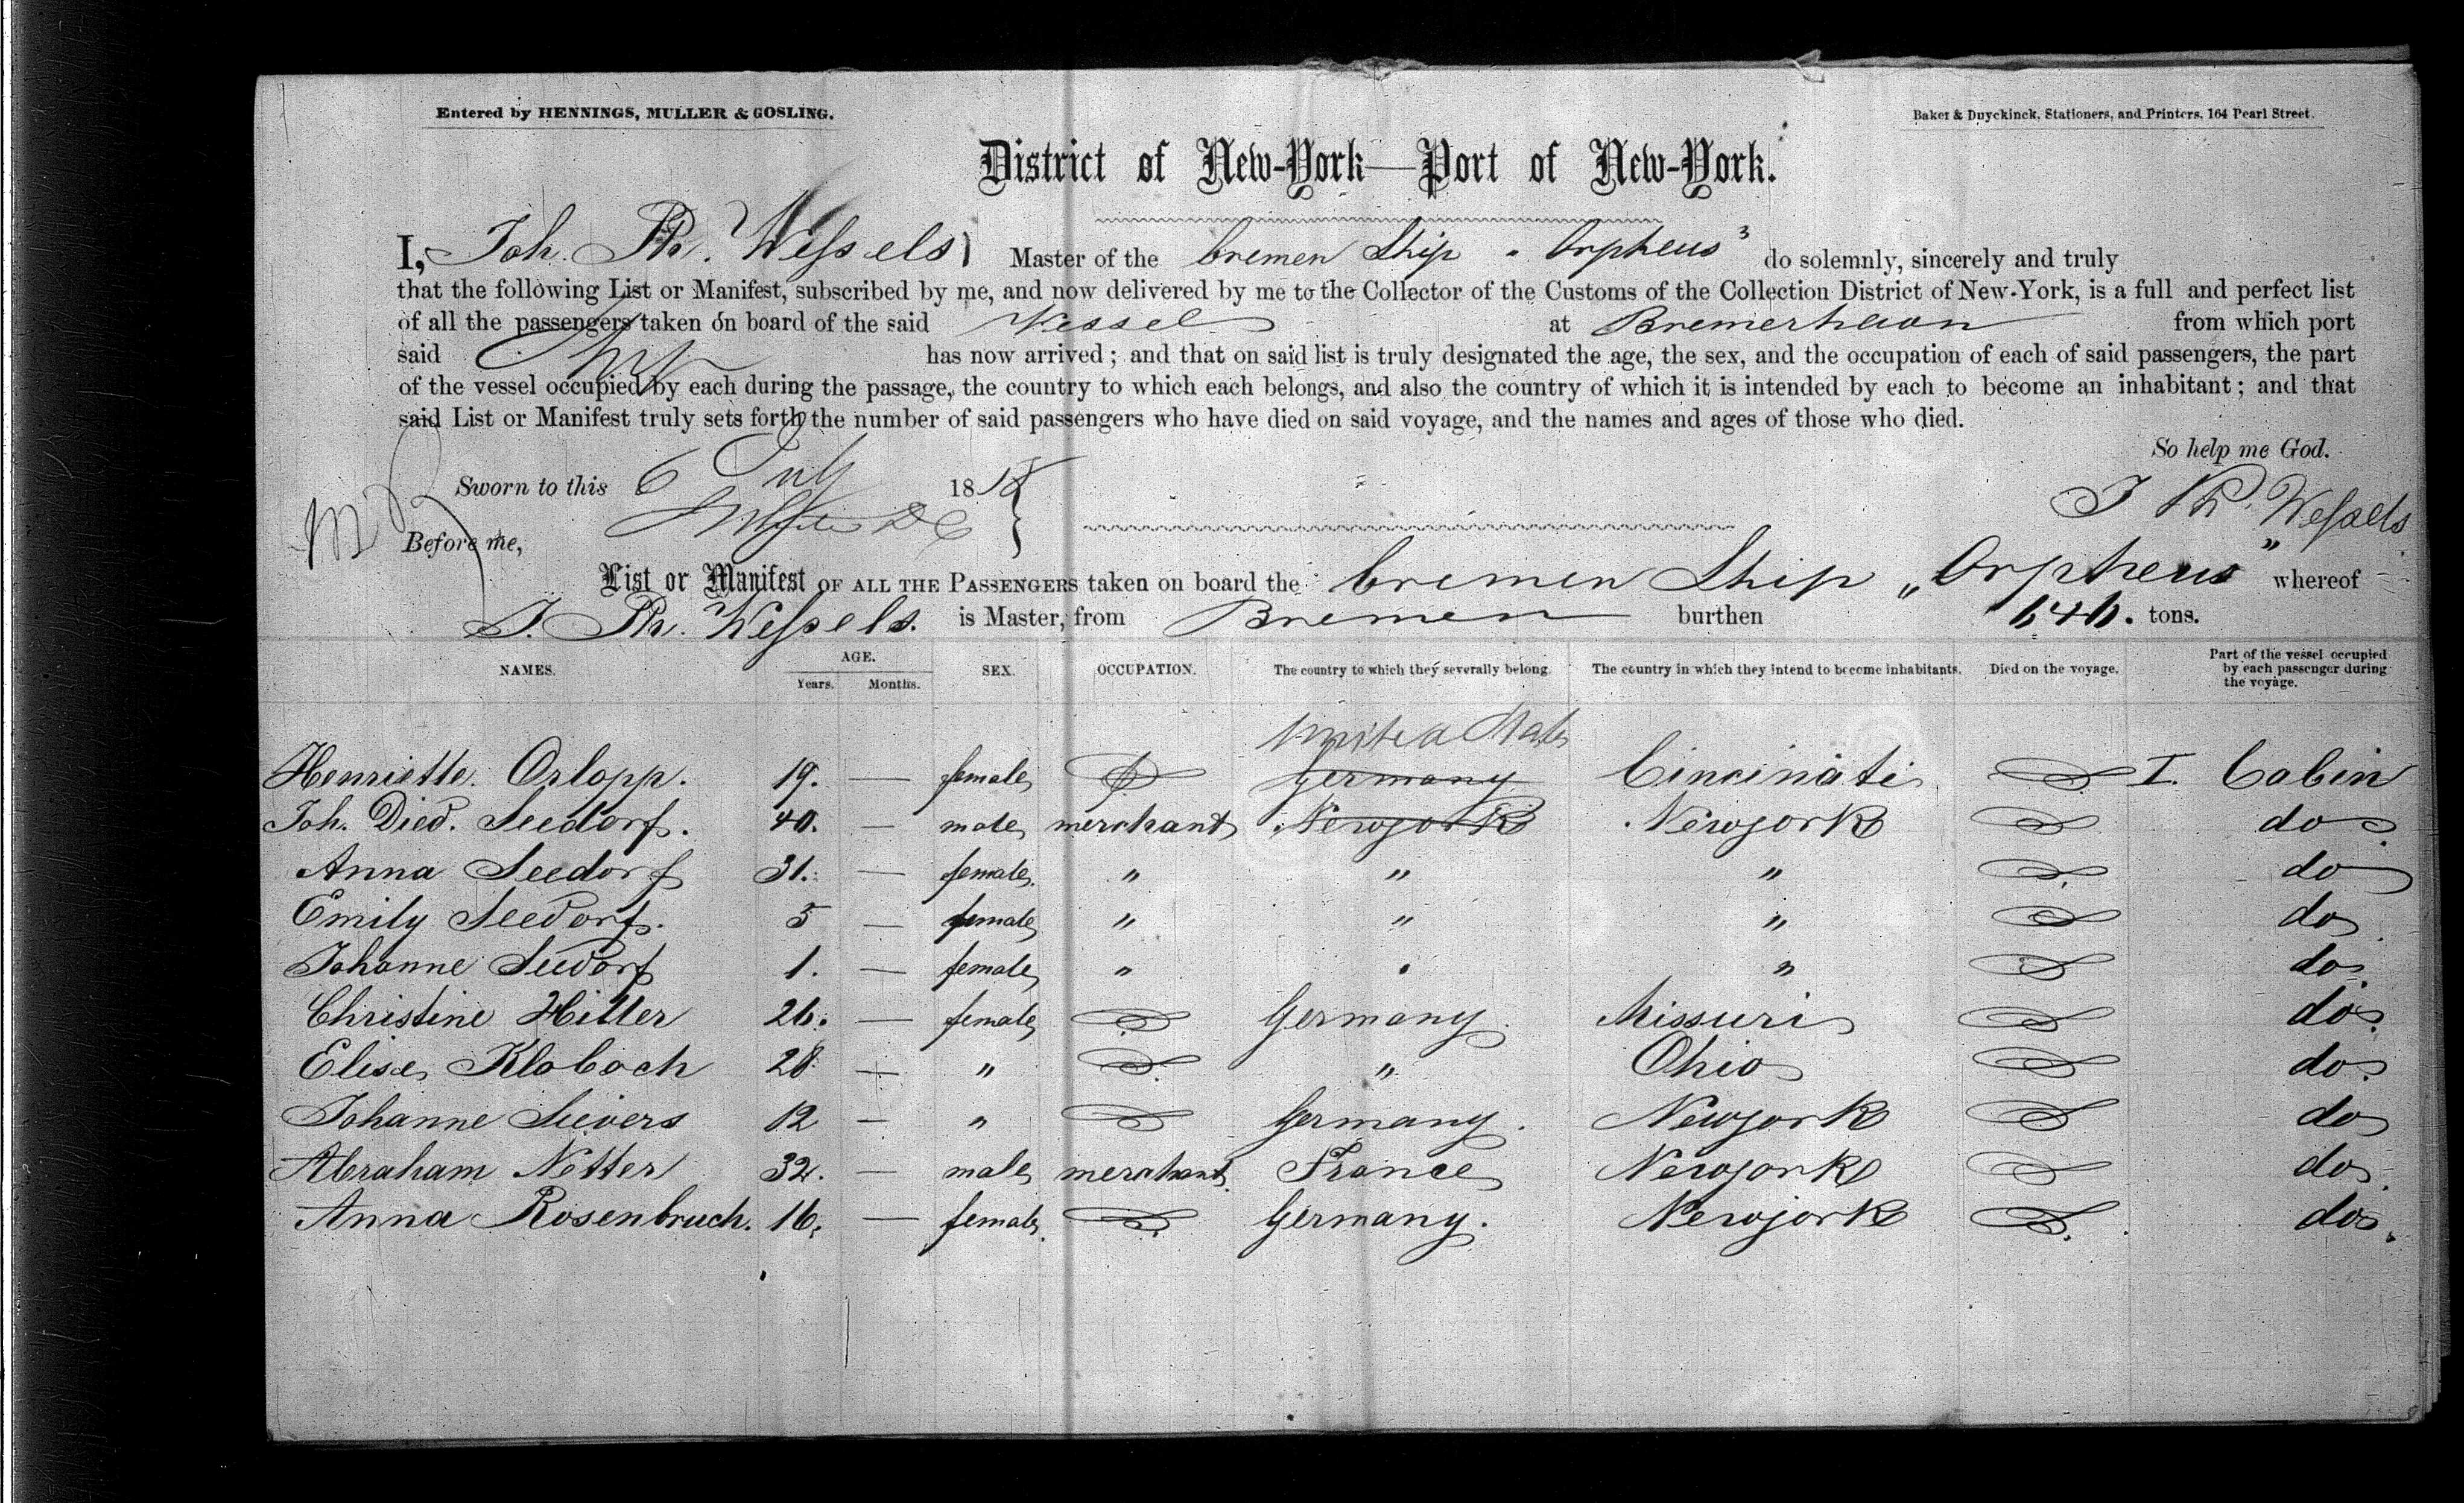 Entered by HENNINGS, MULLER & GOSLING.
Baker & Duyckinck, Stationers, and Printers, 164 Pearl Street.
District of New-York—Port of New-York.
I, Joh. Ph. Wessels Master of the bremen Ship "Orpheus" do solemnly, sincerely and truly
that the following List or Manifest, subscribed by me, and now delivered by me to the Collector of the Customs of the Collection District of New-York, is a full and perfect list
of all the passengers taken on board of the said Vessel at Bremerhaven from which port
said Ship has now arrived; and that on said list is truly designated the age, the sex, and the occupation of each of said passengers, the part
of the vessel occupied by each during the passage, the country to which each belongs, and also the country of which it is intended by each to become an inhabitant; and that
said List or Manifest truly sets forth the number of said passengers who have died on said voyage, and the names and ages of those who died.
So help me God.
Sworn to this 6 July 1858
J Ph. Wessels
Before me,
List or Manifest OF ALL THE PASSENGERS taken on board the bremen Ship „Orpheus" whereof
J. Ph. Wessels. is Master, from Bremen burthen 646. tons.
NAMES. AGE. Years. Months. SEX. OCCUPATION. The country to which they severally belong. The country in which they intend to become inhabitants. Died on the voyage. Part of the vessel occupied by each passenger during the voyage.
United States
Henriette Orlopp. 19. — female Germany Cincinati I. Cabin
Joh. Died. Seedorf. 40. — male merchant Newjork Newjork do
Anna Seedorf 31. — female " " " do
Emily Seedorf. 5 — female " " " do
Johanne Seedorf 1. — female " " " do
Christine Hiller 26. — female Germany. Missuri do.
Elise Klobach 28 — " " Ohio do.
Johanne Sievers 12 — " Germany. Newjork do
Abraham Netter 32. — male merchant France Newjork do.
Anna Rosenbruch. 16. — female Germany. Newjork do.